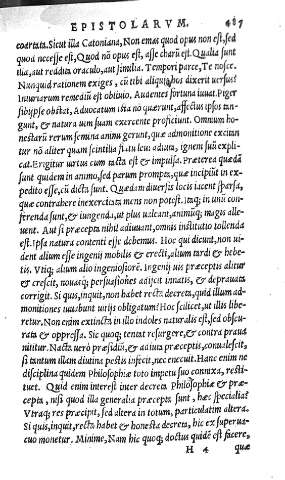 EPISTOLARVM. 487
coartata. Sicut illa Catoniana, Non emas quod opus non est, sed
quod necesse est, Quod nō opus est, asse charū est. Qualia sunt
illa, aut reddita oraculo, aut similia. Tempori parce, Te nosce.
Nunquid rationem exiges, cū tibi aliquis hos dixerit uersus?
Iniuriarum remediū est obliuio. Audentes fortuna iuuat. Piger
sibiipse obstat. Aduocatum ista nō quærunt, affectus ipsos tan
gunt, & natura uim suam exercente proficiunt. Omnium ho
nestarū rerum semina animi gerunt, quæ admonitione excitan
tur nō aliter quam scintilla flatu leui adiuta, ignem suū expli-
cat. Erigitur uirtus cum tacta est & impulsa. Præterea quædā
sunt quidem in animo, sed parum prompta, quæ incipiūt in ex
pedito esse, cū dicta sunt. Quædam diuersis locis iacent sparsa,
quæ contrahere inexercitata mens non potest. Itaq; in unū con
ferenda sunt, & iungenda, ut plus ualeant, animūq; magis alle
uent. Aut si præcepta nihil adiuuant, omnis institutio tollenda
est. Ipsa natura contenti esse debemus. Hoc qui dicunt, non ui-
dent alium esse ingenij mobilis & erecti, alium tardi & hebe-
tis. Vtiq; alium alio ingeniosiorē. Ingenij uis præceptis alitur
& crescit, nouasq; persuasiones adijcit innatis, & deprauata
corrigit. Si quis, inquit, non habet recta decreta, quid illum ad-
monitiones iuuabunt uitijs obligatum? Hoc scilicet, ut illis libe-
retur. Non enim extincta in illo indoles naturalis est, sed obscu-
rata & oppressa. Sic quoq; tentat resurgere, & contra praua
nititur. Nacta uerò præsidiū, & adiuta præceptis, conualescit,
si tantum illam diutina pestis infecit, nec enecuit. Hanc enim ne
disciplina quidem Philosophiæ toto impetu suo connixa, resti-
tuet. Quid enim interest inter decreta Philosophiæ & præ-
cepta, nisi quod illa generalia præcepta sunt, hæc specialia?
Vtraq; res præcipit, sed altera in totum, particulatim altera.
Si quis, inquit, recta habet & honesta decreta, hic ex superua-
cuo monetur. Minimè, Nam hic quoq; doctus quidē est facere,
H 4 quæ